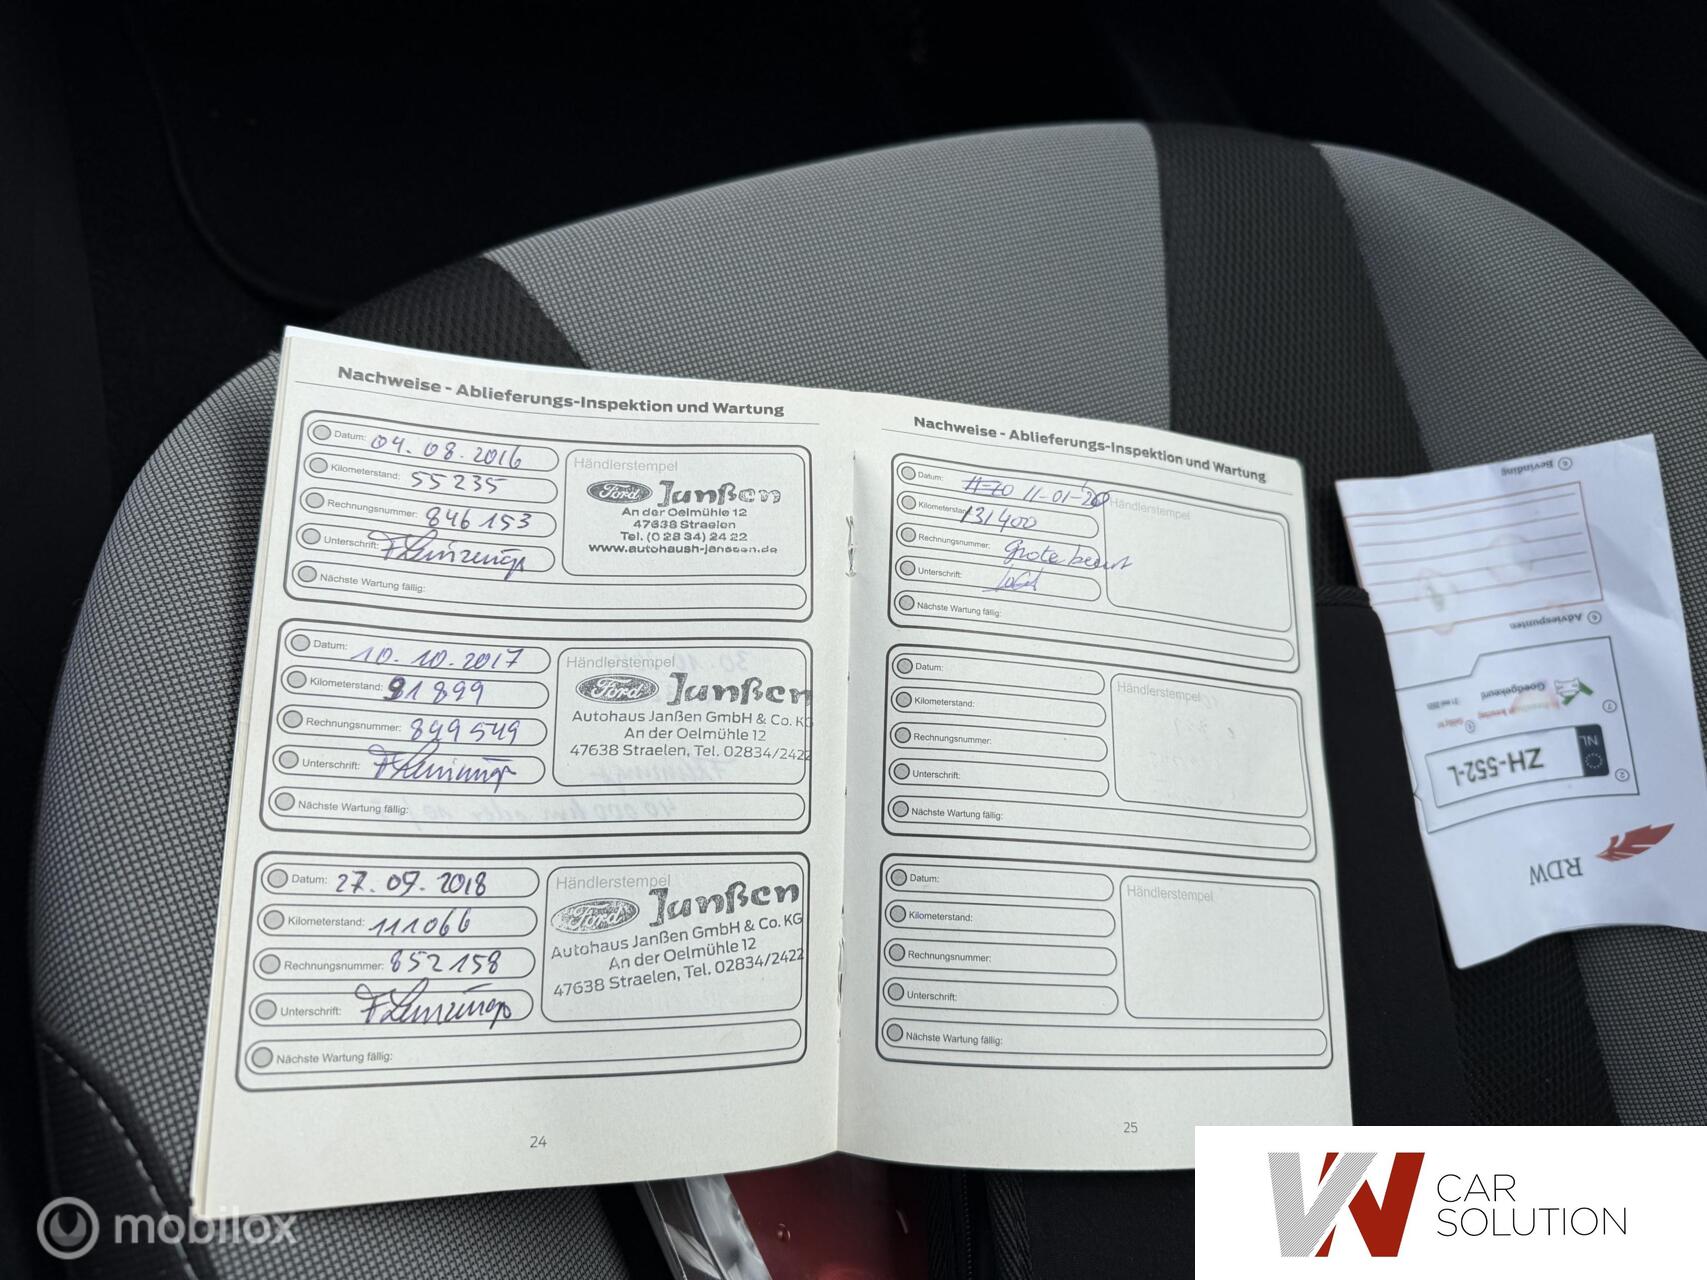 Nachweise - Ablieferungs-Inspektion und Wartung
Datum: 04.08.2016
Kilometerstand: 55235
Rechnungsnummer: 846153
Unterschrift:
Nächste Wartung fällig:
Händlerstempel
Ford Janßen
An der Oelmühle 12
47638 Straelen
Tel. (0 28 34) 24 22
www.autohaush-janssen.de
Datum: 10.10.2017
Kilometerstand: 91899
Rechnungsnummer: 849549
Unterschrift:
Nächste Wartung fällig:
Händlerstempel
Ford Janßen
Autohaus Janßen GmbH & Co. KG
An der Oelmühle 12
47638 Straelen, Tel. 02834/2422
Datum: 27.09.2018
Kilometerstand: 111066
Rechnungsnummer: 852158
Unterschrift:
Nächste Wartung fällig:
Händlerstempel
Ford Janßen
Autohaus Janßen GmbH & Co. KG
An der Oelmühle 12
47638 Straelen, Tel. 02834/2422
24
Nachweise - Ablieferungs-Inspektion und Wartung
Datum: 11-01-20
Kilometerstand: 131400
Rechnungsnummer: Grote beurt
Unterschrift:
Nächste Wartung fällig:
Händlerstempel
Datum:
Kilometerstand:
Rechnungsnummer:
Unterschrift:
Nächste Wartung fällig:
Händlerstempel
Datum:
Kilometerstand:
Rechnungsnummer:
Unterschrift:
Nächste Wartung fällig:
Händlerstempel
25
RDW
NL ZH-552-L
Goedgekeurd
Adviespunten
Bevinding
mobilox
VW CAR
SOLUTION